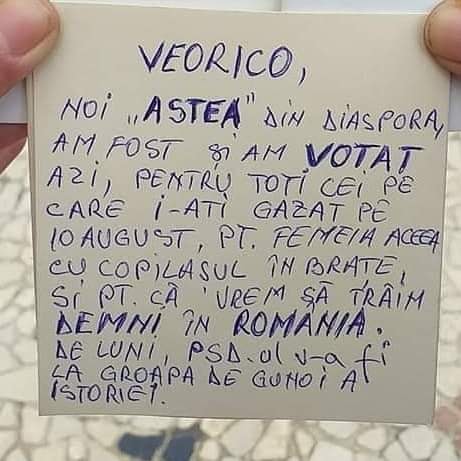 VEORICO,
NOI „ASTEA" DIN DIASPORA,
AM FOST și AM VOTAT
AZI, PENTRU TOTI CEI PE
CARE I-ATI GAZAT PE
10 AUGUST, PT. FEMEIA ACEEA
CU COPILASUL ÎN BRATE,
SI PT. CĂ VREM SĂ TRĂIM
DEMNI ÎN ROMÂNIA.
DE LUNI, PSD.ul v-a fi
LA GROAPA DE GUNOI A
ISTORIEI.